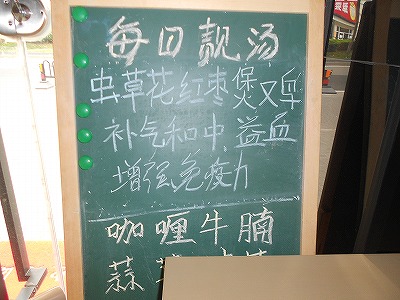 每日靓汤
虫草花红枣煲叉单
补气和中益血
增强免疫力
咖喱牛腩
蒜